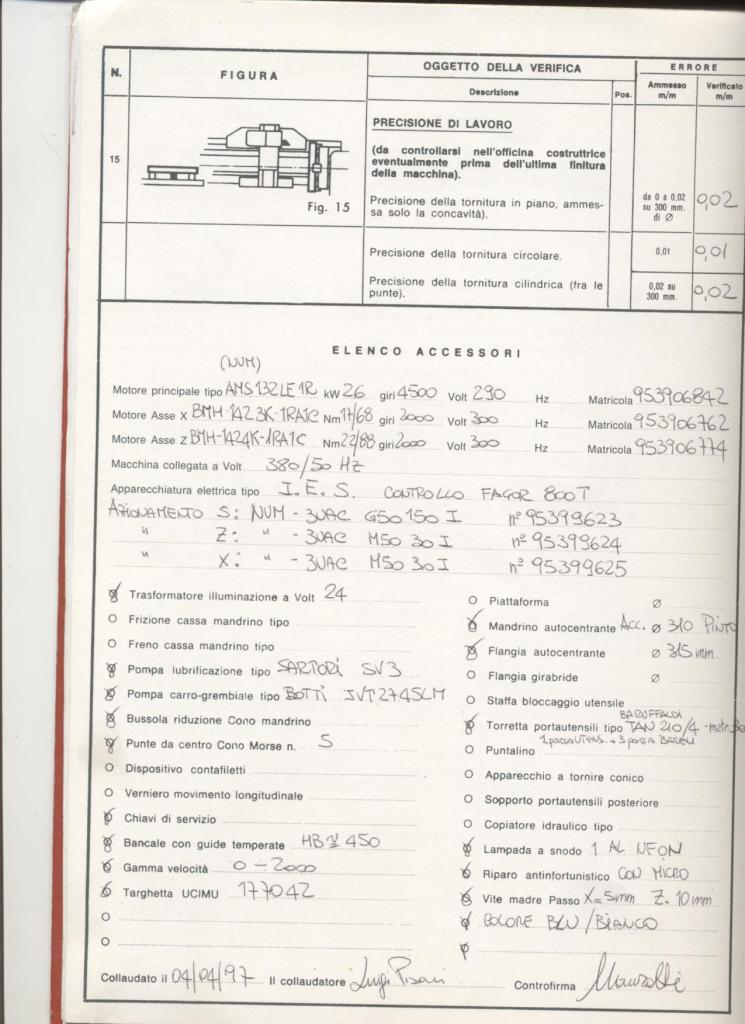 N. FIGURA OGGETTO DELLA VERIFICA ERRORE
Descrizione Pos. Ammesso m/m Verificato m/m
15
PRECISIONE DI LAVORO
(da controllarsi nell'officina costruttrice
eventualmente prima dell'ultima finitura
della macchina).
Precisione della tornitura in piano, ammes-
sa solo la concavità).
da 0 a 0,02
su 300 mm.
di Ø
0,02
Fig. 15
Precisione della tornitura circolare. 0,01 0,01
Precisione della tornitura cilindrica (fra le
punte).
0,02 su
300 mm.
0,02
ELENCO ACCESSORI
(NUM)
Motore principale tipo AMS132LE1R kW 26 giri 4500 Volt 290 Hz Matricola 953906842
Motore Asse X BMH-1423K-1RA1C Nm 17/68 giri 2000 Volt 300 Hz Matricola 953906762
Motore Asse Z BMH-1424K-1RA1C Nm 22/88 giri 2000 Volt 300 Hz Matricola 953906774
Macchina collegata a Volt 380/50 HZ
Apparecchiatura elettrica tipo I.E.S. CONTROLLO FAGOR 800T
AZIONAMENTO S: NUM - 3VAC G50 150 I n° 95399623
" Z: " - 3VAC M50 30 I n° 95399624
" X: " - 3VAC M50 30 I n° 95399625
Trasformatore illuminazione a Volt 24
Frizione cassa mandrino tipo
Freno cassa mandrino tipo
Pompa lubrificazione tipo SARTORI SV3
Pompa carro-grembiale tipo BOTTI JVT274SLM
Bussola riduzione Cono mandrino
Punte da centro Cono Morse n. 5
Dispositivo contafiletti
Verniero movimento longitudinale
Chiavi di servizio
Bancale con guide temperate HB 450
Gamma velocità 0-2000
Targhetta UCIMU 177042
Piattaforma Ø
Mandrino autocentrante Acc. Ø 310 PINTO
Flangia autocentrante Ø 315 mm
Flangia girabride Ø
Staffa bloccaggio utensile
BARUFFALDI
Torretta portautensili tipo TAN 210/4 - matr.
1 portAUTENS. + 3 porta BARENI
Puntalino
Apparecchio a tornire conico
Sopporto portautensili posteriore
Copiatore idraulico tipo
Lampada a snodo 1 AL NEON
Riparo antinfortunistico CON MICRO
Vite madre Passo X=5mm Z.10mm
COLORE BLU/BIANCO
Collaudato il 04/04/97 Il collaudatore Luigi Pisani Controfirma